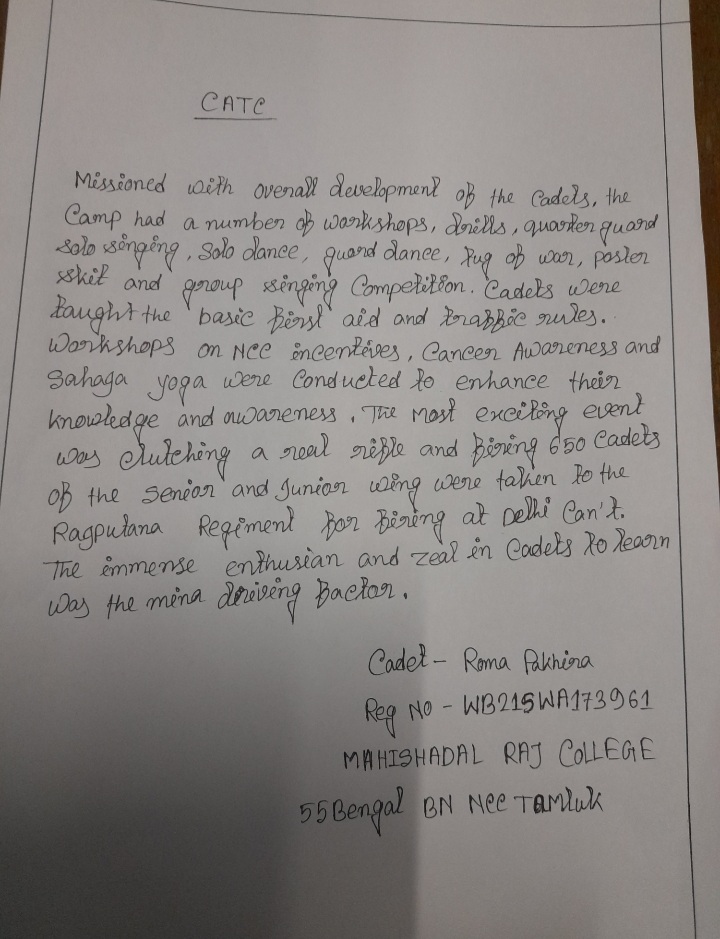 CATC
Missioned with overall development of the Cadets, the
Camp had a number of workshops, drills, quarter guard
solo singing, solo dance, guard dance, tug of war, poster
skit and group singing Competition. Cadets were
taught the basic first aid and traffic rules.
Workshops on NCC incentives, Cancer Awareness and
Sahaga yoga were Conducted to enhance their
knowledge and awareness. The most exciting event
was clutching a real rifle and firing 650 Cadets
of the Senior and Junior wing were taken to the
Ragputana Regiment for firing at Delhi Can't.
The immense enthusian and zeal in Cadets to learn
was the mina driving factor.
Cadet- Roma Pakhira
Reg No - WB21SWA173961
MAHISHADAL RAJ COLLEGE
55 Bengal BN NCC TAMluk